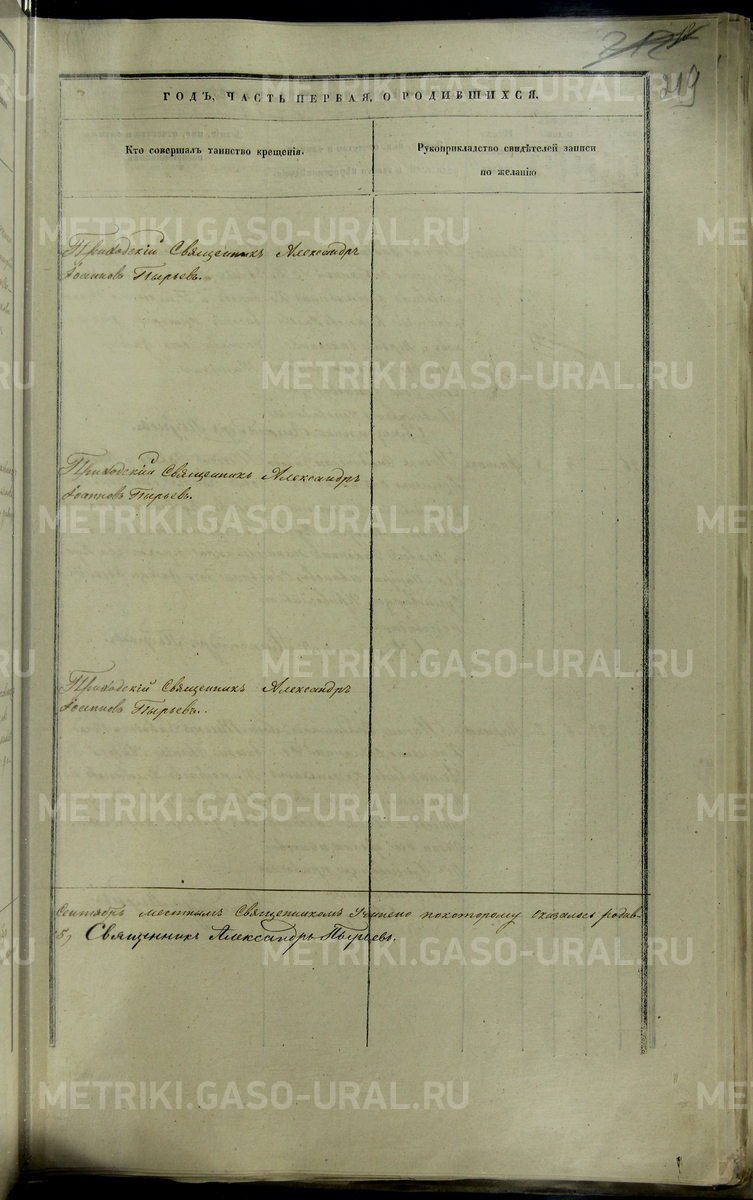 219
ГОДЪ, ЧАСТЬ ПЕРВАЯ, О РОДИВШИХСЯ.
Кто совершалъ таинство крещенія.
Рукоприкладство свидѣтелей записи
по желанію
Приходскій Священникъ Александръ
Іоанновъ Пырьевъ.
Приходскій Священникъ Александръ
Іоанновъ Пырьевъ.
Приходскій Священникъ Александръ
Іоанновъ Пырьевъ.
Сентябрь местнымъ Священникомъ Учинено покоторому Оказалось родив-
Священникъ Александръ Пырьевъ.
METRIKI.GASO-URAL.RU